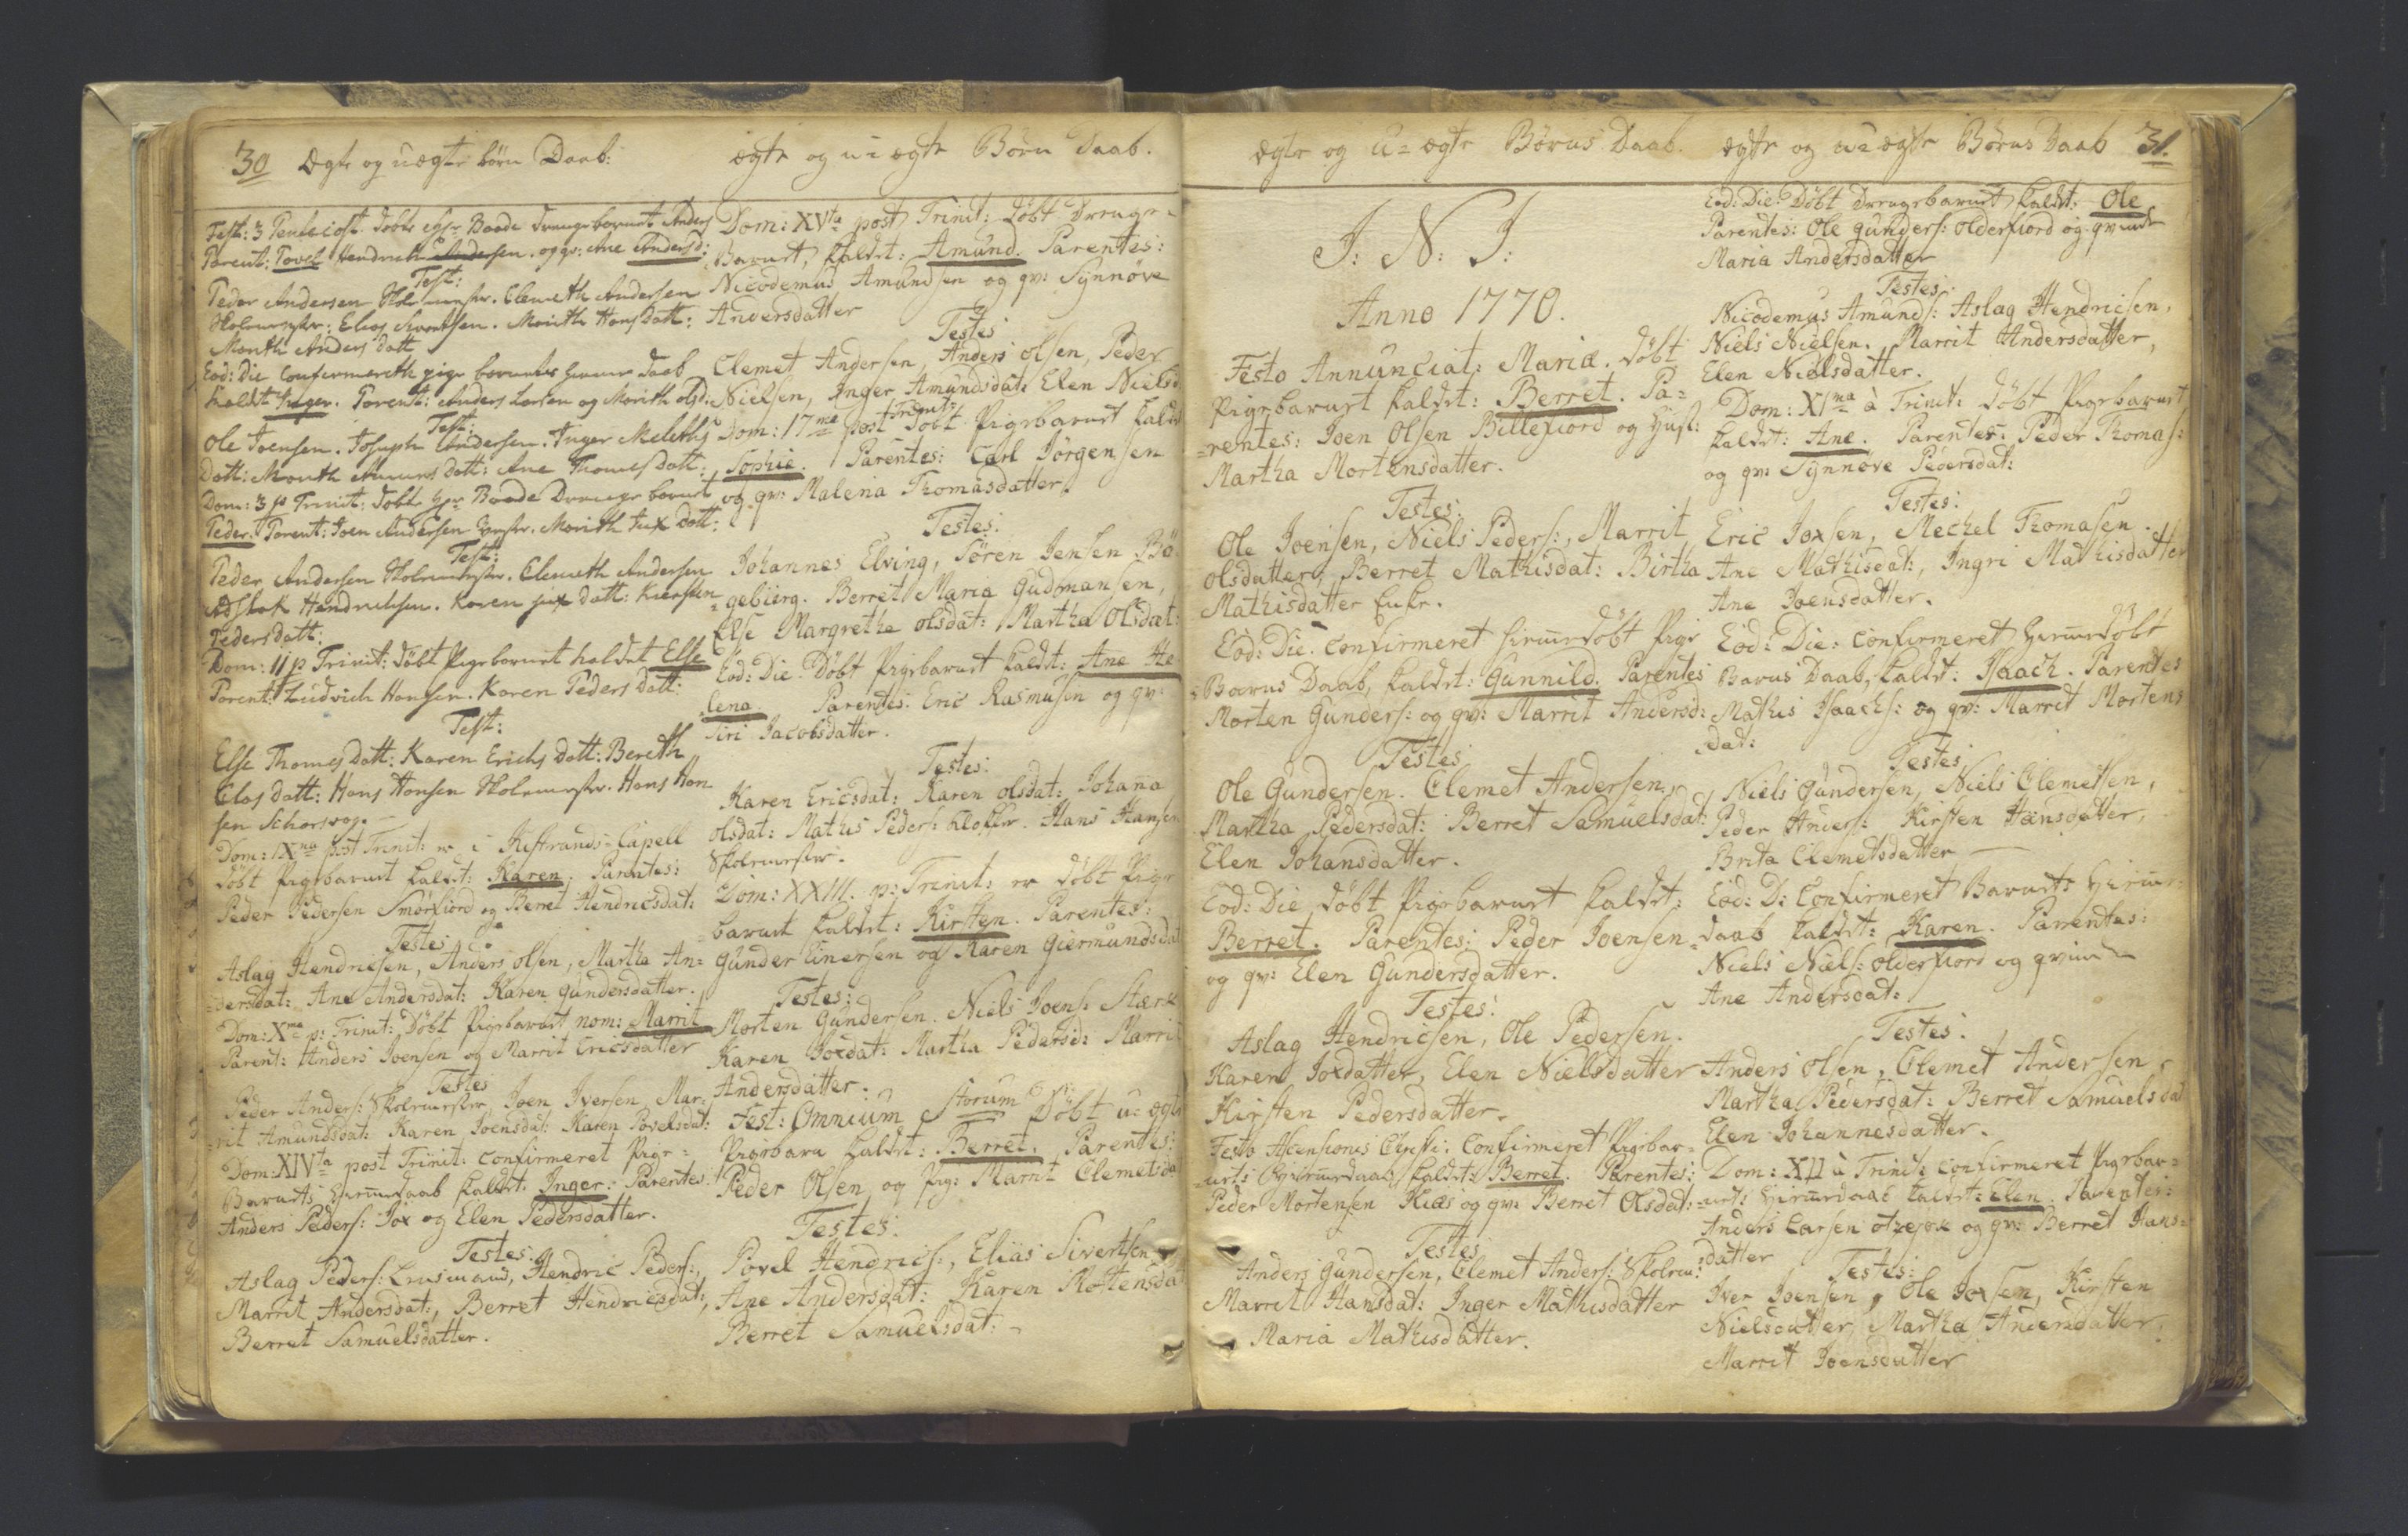 30 Ægte og uægte börn Daab:
Fest: 3 Pentecost. döbt Baade Drenge barnet Anders
Parent: Povel Hendrich Andersen. og qv: Ane Andersd:
Test:
Peder Andersen Skolemester. Clemeth Andersen
Skolemester: Elias Sivertsen. Marith Hans Datt:
Marith Anders datt
Eod: Die Confermereth pige barnets hieme daab
kaldet Inger. Parent: Anders Larsen og Marith olsd:
Test:
Ole Joensen. Joseph Andersen. Inger Melchs
Datt: Marith Amunds datt: Ane Thomes datt:
Dom: 3 p Trinit: döbt Baade Drenge barnet
Peder. Parent: Joen Andersen Marith Jox datt:
Test:
Peder Andersen Skolemester. Clemeth Andersen
Aslak Hendrichsen. Karen Jox datt: Kiersten
Peders datt:
Dom: 11 p Trinit: döbt Pigebarnet kaldet Else
Parent: Ludvich Hansen. Karen Peders datt:
Test:
Else Thomes datt: Karen Erichs datt: Bereth
Clas datt: Hans Hansen Skolemester. Hans Han
sen
Dom: IXna post Trinit: er i Kistrands-Capell
döbt Pigebarnet kaldet: Karen. Parentes:
Peder Pedersen Smörfiord og Berret Hendricsdat:
Testes:
Aslag Hendricsen, Anders olsen, Martha An-
dersdat: Ane Andersdat: Karen gundersdatter.
Dom: Xma p: Trinit: Döbt Pigebarnet nom: Marrit
Parent: Anders Joensen og Marrit Ericsdatter
Testes
Peder Anders: Skolemester, Joen Iversen, Mar-
rit Amundsdat: Karen Joensdat: Karen Povelsdat:
Dom: XIVta post Trinit: confirmeret Pige-
Barnets hiemedaab kaldet Inger. Parentes:
Anders Peders: Jox og Elen Pedersdatter.
Testes:
Aslag Peders: Lensmand, Hendric Peders:,
Marrit Andersdat:, Berret Hendricsdat:,
Berret Samuelsdatter.
ægte og u-ægte Börn Daab.
Dom: XVta post Trinit: Döbt Drenge-
Barnet, kaldet: Amund. Parentes:
Nicodemus Amundsen og qv: Synnöve
Andersdatter
Testes
Clemet Andersen, Anders olsen, Peder
Nielsen, Inger Amundsdat: Elen Nielsd:
Dom: 17me post Trinit: Döbt Pigebarnet kaldet
Sophie. Parentes: Carl Jörgensen
og qv: Malena Thomasdatter.
Testes:
Johannes Elving, Sören Jensen Bö-
gebierg. Berret Maria Gudmansen,
Else Margretha olsdat: Martha Olsdat:
Eod: Die: Döbt Pigebarnet kaldet: Ane He-
lena. Parentes: Eric Rasmusen og qv:
Siri Jacobsdatter.
Testes:
Karen Ericsdat: Karen olsdat: Johana
olsdat: Mathis Peders: klokker. Hans Hansen
Skolemester.
Dom: XXIII. p: Trinit: er döbt Pige-
barnet kaldet: Kirsten. Parentes:
Gunder Einersen og Karen Giermundsdat
Testes:
Morten Gundersen. Niels Joens: Stærk
Karen Joxdat: Martha Pedersd: Marrit
Andersdatter.
Fest: Omnium Storum Döbt u-ægte
Pigebarn kaldet: Berret. Parentes:
Peder Olsen og pig: Marrit Clemetsdat
Testes:
Povel Hendrics:, Elias Sivertsen
Ane Andersdat: Karen Mortensdat
Berret Samuelsdat:
ægte og u-ægte Börns Daab.
J: N: J:
Anno 1770.
Festo Annunciat: Mariæ. döbt
Pigebarnet kaldet: Berret. Pa-
rentes: Joen Olsen Billefiord og Hust:
Martha Mortensdatter.
Testes:
Ole Joensen, Niels Peders:, Marrit
olsdatter, Berret Mathisdat: Birtha
Mathisdatter Enke.
Eod: Die: confirmeret hiemedöbt Pige
Barns Daab, kaldet: Gunnild. Parentes
Morten Gunders: og qv: Marrit Andersd:
Testes
Ole Gundersen. Clemet Andersen,
Martha Pedersdat: Berret Samuelsdat:
Elen Johansdatter.
Eod: Die döbt Pigebarnet kaldet:
Berret. Parentes: Peder Joensen
og qv: Elen Gundersdatter.
Testes:
Aslag Hendricsen, Ole Pedersen.
Karen Joxdatter, Elen Nielsdatter
Kirsten Pedersdatter.
Festo Ascensionis Christi: Confirmeret Pigebar-
nets hiemedaab kaldet: Berret. Parentes:
Peder Mortensen Kiæs og qv: Berret Olsdat:
Testes
Anders Gundersen, Clemet Anders: Skolem:
Marrit Hansdat: Inger Mathisdatter
Maria Mathisdatter.
ægte og u-ægte Börns Daab 31.
Eod: Die: Döbt Drengebarnet kaldet: Ole
Parentes: Ole gunders: olderfiord og qvinde
Maria Andersdatter
Testes:
Nicodemus Amunds: Aslag Hendricsen,
Niels Nielsen. Marrit Andersdatter,
Elen Nielsdatter.
Dom: XIma à Trinit: döbt Pigebarnet
kaldet: Ane. Parentes: Peder Thomas:
og qv: Synnöve Pedersdat:
Testes:
Eric Joxsen, Mechel Thomasen.
Ane Mathisdat:, Ingri Mathisdatter
Ane Joensdatter.
Eod: Die: confirmeret hiemedöbt
Barns Daab, kaldet: Isaach. Parentes
Mathis Isaachs: og qv: Marrit Mortens
dat:
Testes
Niels Gundersen, Niels Clemetsen,
Peder Anders: Kirsten Hansdatter,
Brita Clemetsdatter
Eod: D: Confirmeret Barnets hieme-
daab kaldet: Karen. Parentes:
Niels Niels: olderfiord og qvinde
Ane Andersdat:
Testes:
Anders olsen, Clemet Andersen
Martha Pedersdat: Berret Samuelsdat
Elen Johannesdatter.
Dom: XII à Trinit: confirmeret Pigebar-
nets hiemedaab kaldet: Elen. Parentes:
Anders Larsen og qv: Berret Hans-
datter
Testes:
Iver Joensen, Ole Joxsen, Kirsten
Nielsdatter, Martha Andersdatter,
Marrit Joensdatter